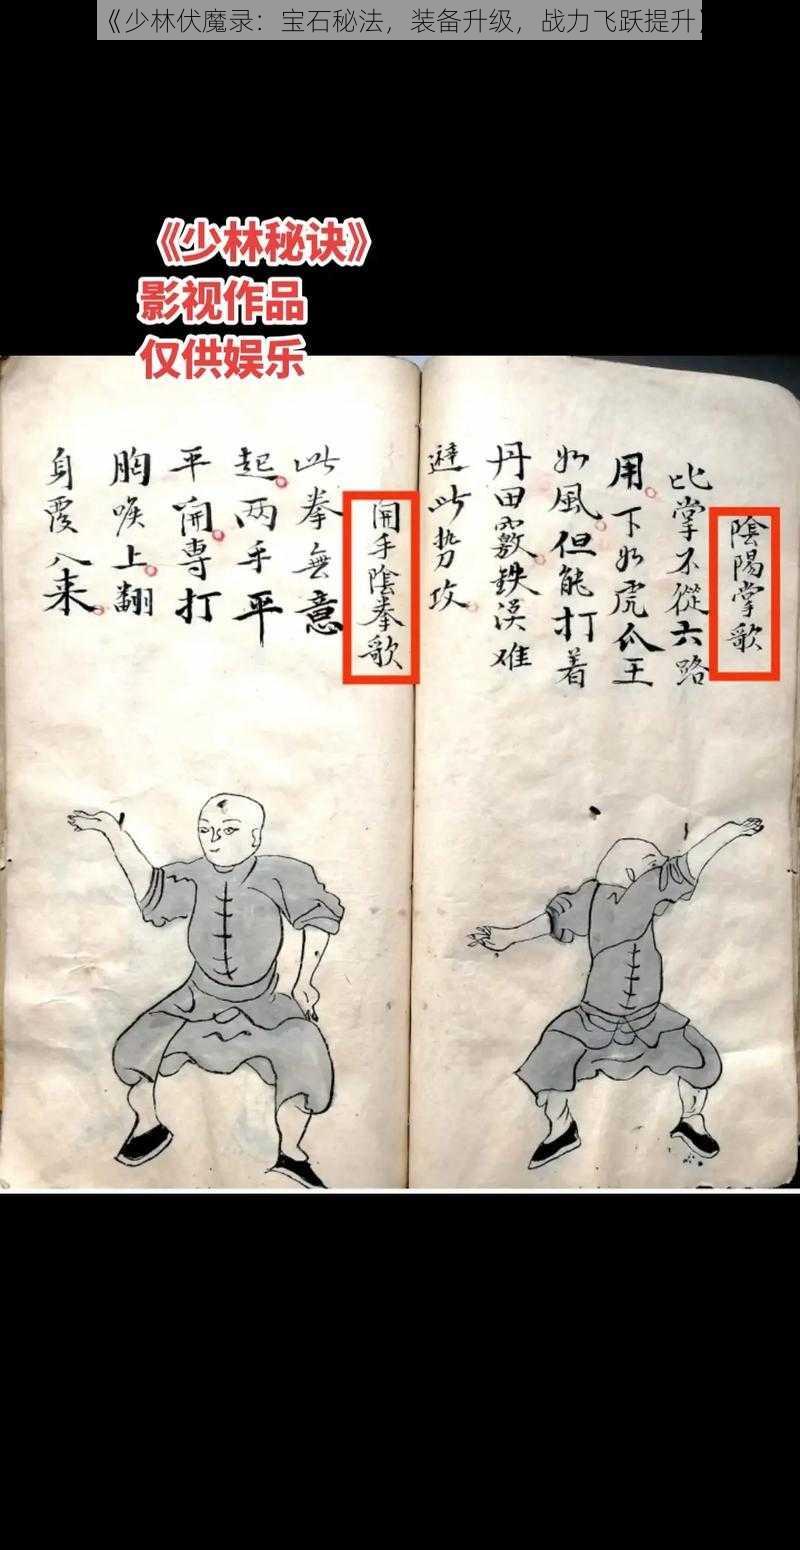 《少林伏魔录：宝石秘法，装备升级，战力飞跃提升
《少林秘诀》
影视作品
仅供娱乐
陰陽掌歌
此掌不從六路
用下如虎爪王
如風但能打着
丹田竅鉄漢难
避此势攻
開手陰拳歌
此拳無意
起两手平
平開專打
胸喉上翻
身覆八来